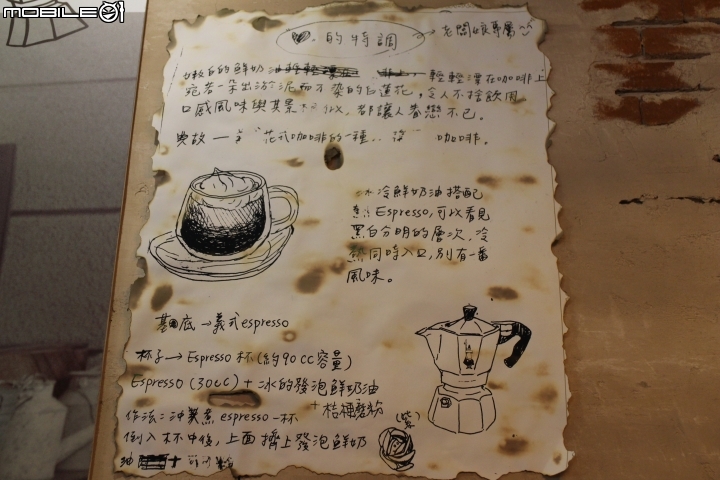 MOBILE01
的特調 → 老闆娘專屬
嫩白的鮮奶油 輕輕漂在咖啡上
宛若一朵出淤泥而不染的白蓮花。令人不捨飲用
口感風味與其景 都讓人眷戀不已。
典故 — "花式咖啡的一種 咖啡。
冰冷鮮奶油搭配
Espresso,可以看見
黑白分明的層次,冷
熱同時入口,別有一番
風味。
基底 → 義式espresso
杯子 → Espresso 杯(約90cc容量)
Espresso (30cc) + 冰的發泡鮮奶油
+ 桔梗蘑菇
作法:沖煮 espresso 一杯
倒入杯中後,上面擠上發泡鮮奶
油